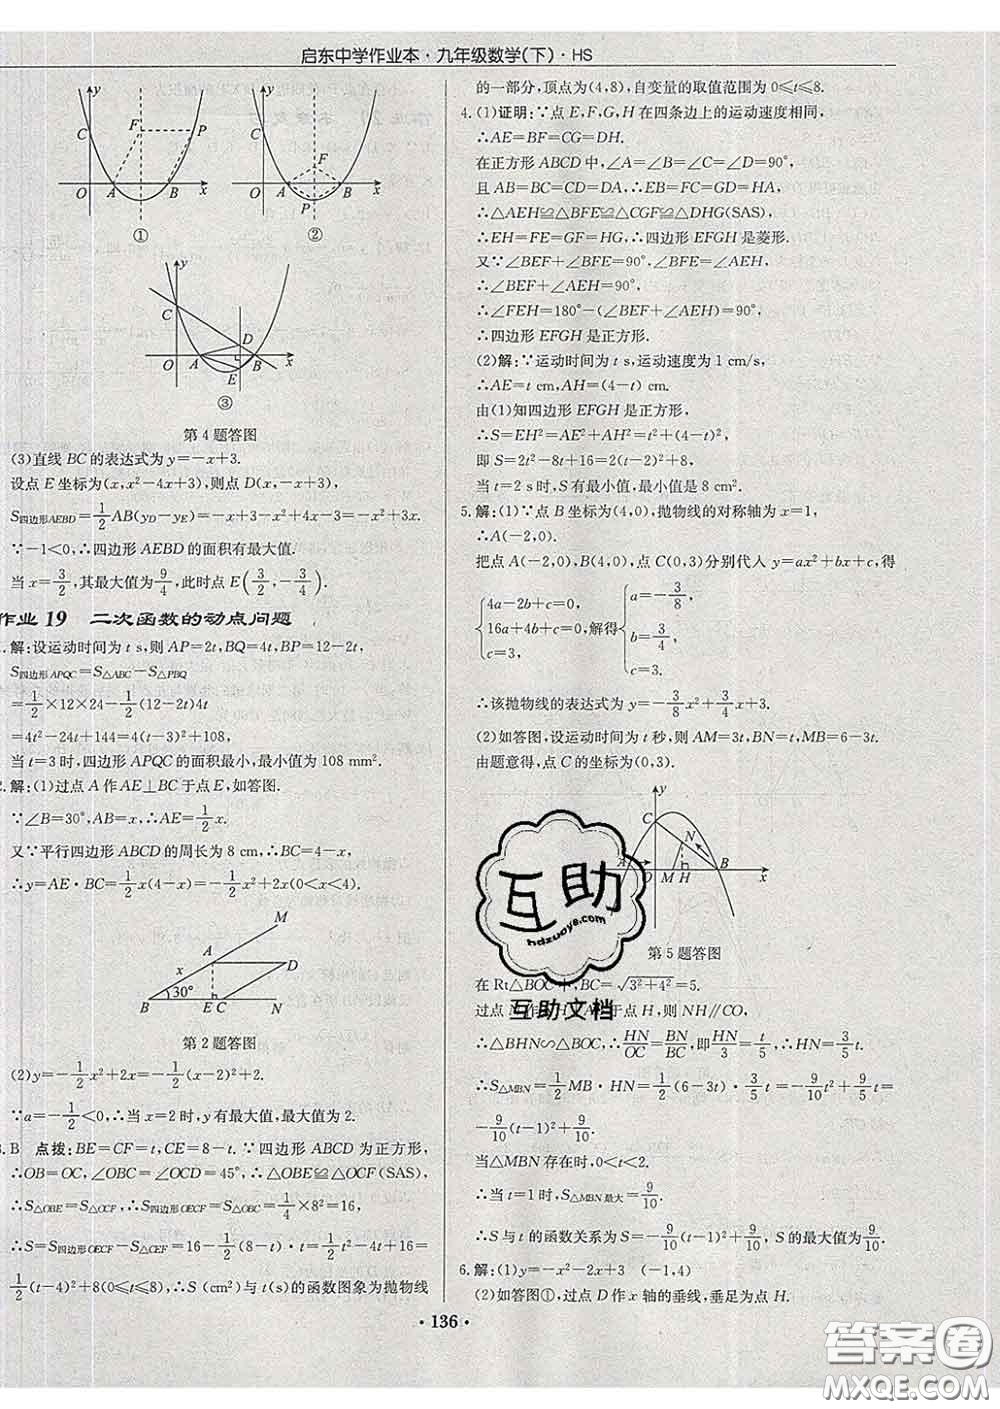 启东中学作业本·九年级数学(下)·HS
y
C
F
P
O
A
B
x
①
y
C
F
O
A
B
P
x
②
y
C
D
O
A
B
E
x
③
第4题答图
(3)直线BC的表达式为y=-x+3.
设点E坐标为(x,x²-4x+3),则点D(x,-x+3),
S四边形AEBD=1/2AB(yD-yE)=-x+3-x²+4x-3=-x²+3x.
∵-1<0,∴四边形AEBD的面积有最大值.
当x=3/2,其最大值为9/4,此时点E(3/2,-3/4).
作业19 二次函数的动点问题
解:设运动时间为t s,则AP=2t,BQ=4t,BP=12-2t,
S四边形APQC=S△ABC-S△PBQ
=1/2×12×24-1/2(12-2t)4t
=4t²-24t+144=4(t-3)²+108,
当t=3时,四边形APQC的面积最小,最小值为108 mm².
2.解:(1)过点A作AE⊥BC于点E,如答图.
∵∠B=30°,AB=x,∴AE=1/2x.
又∵平行四边形ABCD的周长为8 cm,∴BC=4-x,
∴y=AE·BC=1/2x(4-x)=-1/2x²+2x(0<x<4).
M
A
D
x
30°
B
E
C
N
第2题答图
(2)y=-1/2x²+2x=-1/2(x-2)²+2.
∵a=-1/2<0,∴当x=2时,y有最大值,最大值为2.
3.B 点拨:BE=CF=t,CE=8-t.∵四边形ABCD为正方形,
∴OB=OC,∠OBC=∠OCD=45°,∴△OBE≌△OCF(SAS),
∴S△OBE=S△OCF,∴S四边形OECF=S△OBC=1/4×8²=16,
∴S=S四边形OECF-S△CEF=16-1/2(8-t)·t=1/2t²-4t+16=
1/2(t-4)²+8(0≤t≤8),∴S(cm²)与t(s)的函数图象为抛物线
的一部分,顶点为(4,8),自变量的取值范围为0≤t≤8.
4.(1)证明:∵点E,F,G,H在四条边上的运动速度相同,
∴AE=BF=CG=DH.
在正方形ABCD中,∠A=∠B=∠C=∠D=90°,
且AB=BC=CD=DA,∴EB=FC=GD=HA,
∴△AEH≌△BFE≌△CGF≌△DHG(SAS),
∴EH=FE=GF=HG,∴四边形EFGH是菱形.
又∵∠BEF+∠BFE=90°,∠BFE=∠AEH,
∴∠BEF+∠AEH=90°,
∴∠FEH=180°-(∠BEF+∠AEH)=90°,
∴四边形EFGH是正方形.
(2)解:∵运动时间为t s,运动速度为1 cm/s,
∴AE=t cm,AH=(4-t) cm.
由(1)知四边形EFGH是正方形,
∴S=EH²=AE²+AH²=t²+(4-t)²,
即S=2t²-8t+16=2(t-2)²+8,
当t=2 s时,S有最小值,最小值是8 cm².
5.解:(1)∵点B坐标为(4,0),抛物线的对称轴为x=1,
∴A(-2,0).
把点A(-2,0),B(4,0),点C(0,3)分别代人y=ax²+bx+c,得
{4a-2b+c=0, 16a+4b+c=0, c=3, 解得{a=-3/8, b=3/4, c=3,
∴该抛物线的表达式为y=-3/8x²+3/4x+3.
(2)如答图,设运动时间为t秒,则AM=3t,BN=t,MB=6-3t.
由题意得,点C的坐标为(0,3).
y
C
N
A
O
M
H
B
x
第5题答图
在Rt△BOC中,BC=√(3²+4²)=5.
过点N作NH⊥AB于点H,则NH∥CO,
∴△BHN∽△BOC,∴HN/OC=BN/BC,即HN/3=t/5,∴HN=3/5t.
∴S△MBN=1/2MB·HN=1/2(6-3t)·3/5t=-9/10t²+9/5t=
-9/10(t-1)²+9/10.
当△MBN存在时,0<t<2.
∴当t=1时,S△MBN最大=9/10.
∴S与t的函数关系为S=-9/10(t-1)²+9/10,S的最大值为9/10.
6.解:(1)y=-x²-2x+3 (-1,4)
(2)如答图①,过点D作x轴的垂线,垂足为点H.
·136·
互助
hdzuoye.com
互助文档
答案圈
MXQE.COM